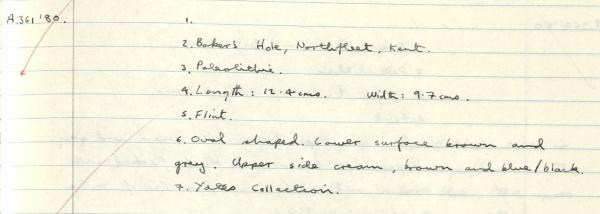 A.361 '80.
1.
2. Baker's Hole, Northfleet, Kent.
3. Paleolithic.
4. Length: 12.4cms. Width: 9.7cms.
5. Flint.
6. Oval shaped. Lower surface brown and
grey. Upper side cream, brown and blue/black.
7. Yates Collection.